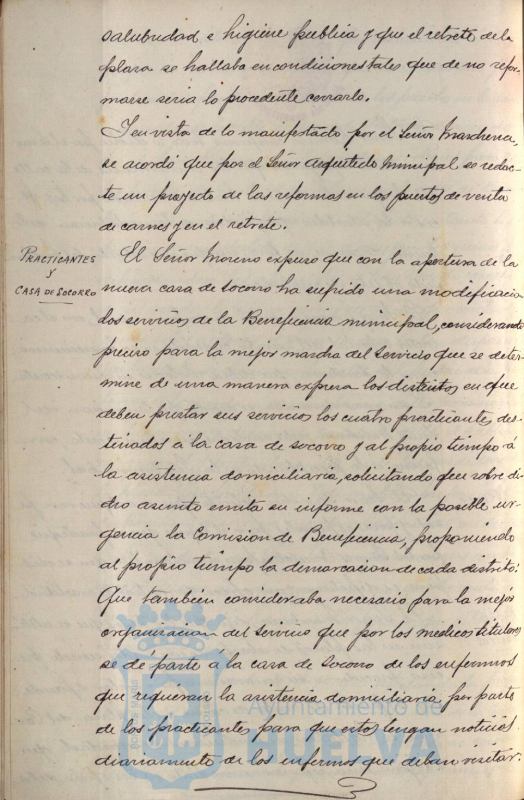 salubridad e higiene publica y que el retrete de la
plaza se hallaba en condiciones tales que de no refor-
marse seria lo procedente cerrarlo.
Y en vista de lo manifestado por el Señor Marchena,
se acordó que por el Señor Arquitecto Municipal se redac-
te un proyecto de las reformas en los puestos de venta
de carnes y en el retrete.
PRACTICANTES
Y
CASA DE SOCORRO
El Señor Moreno expuso que con la apertura de la
nueva casa de Socorro ha sufrido una modificacion
los servicios de la Beneficencia municipal, considerando
preciso para la mejor marcha del Servicio que se deter-
mine de una manera expresa los distritos en que
deben prestar sus servicios los cuatro practicantes des-
tinados á la casa de socorro y al propio tiempo á
la asistencia domiciliaria, solicitando que sobre di-
cho asunto emita su informe con la posible ur-
gencia la Comision de Beneficencia, proponiendo
al propio tiempo la demarcacion de cada distrito.
Que tambien consideraba necesario para la mejor
organizacion del servicio que por los medicos titulares
se dé parte á la casa de Socorro de los enfermos
que requieran la asistencia domiciliaria por parte
de los practicantes para que estos tengan noticias
diariamente de los enfermos que deban visitar.
Ayuntamiento de
HUELVA